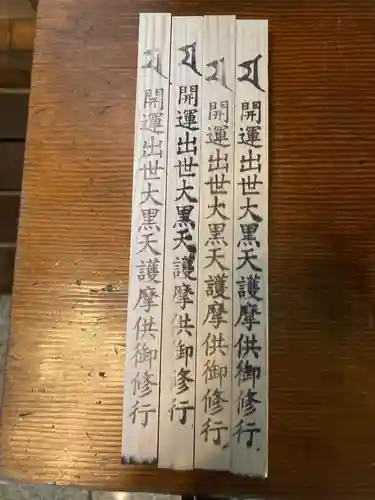 𑖦 開運出世大黒天護摩供御修行
𑖦 開運出世大黒天護摩供御修行
𑖦 開運出世大黒天護摩供御修行
𑖦 開運出世大黒天護摩供御修行